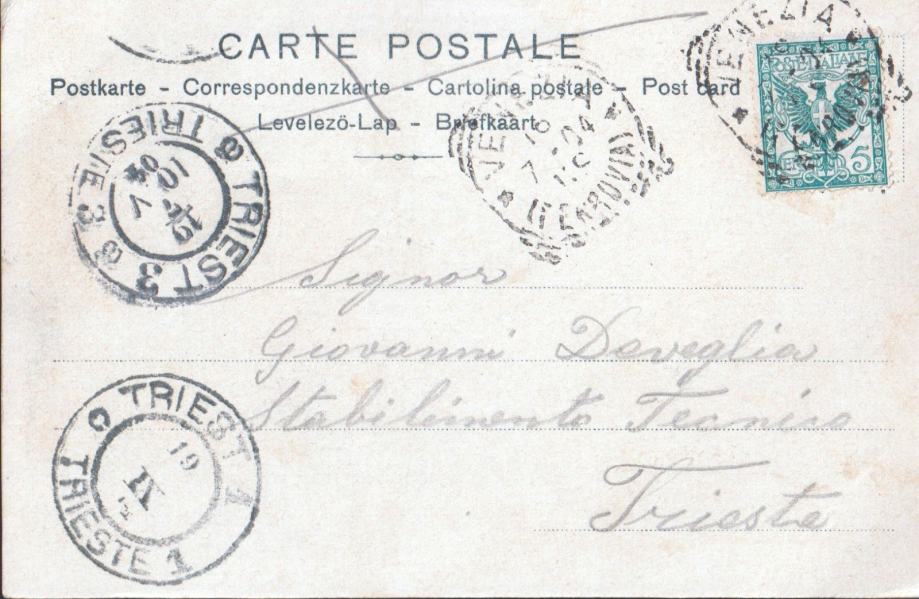 CARTE POSTALE
Postkarte – Correspondenzkarte – Cartolina postale – Post card
Levelezö-Lap – Briefkaart
VENEZIA
(FERROVIA)
VENEZIA
POSTE ITALIANE
5
TRIESTE 3 TRIEST 3
Signor
Giovanni Deveglia
Stabilimento Tecnico
Trieste
TRIEST 1
19
IX
TRIESTE 1